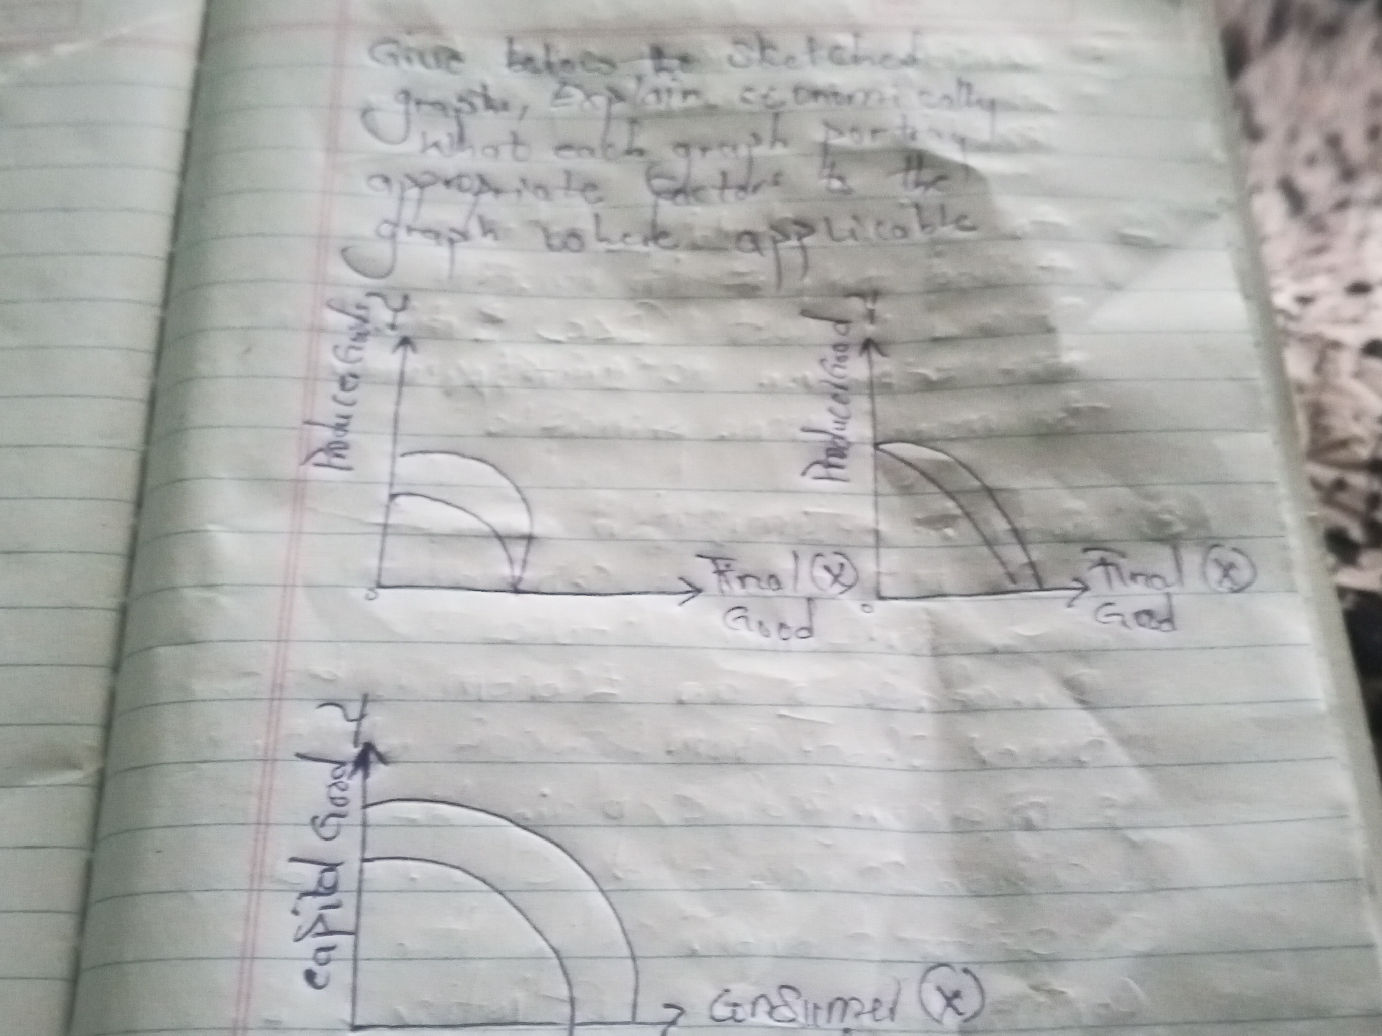 Give below the sketched
graph, Explain economically
what each graph portray
appropriate factors to the
graph where applicable
Producer Good Y
Final (X)
Good
Producer Good Y
Final (X)
Good
Capital Good Y
Consumer (X)